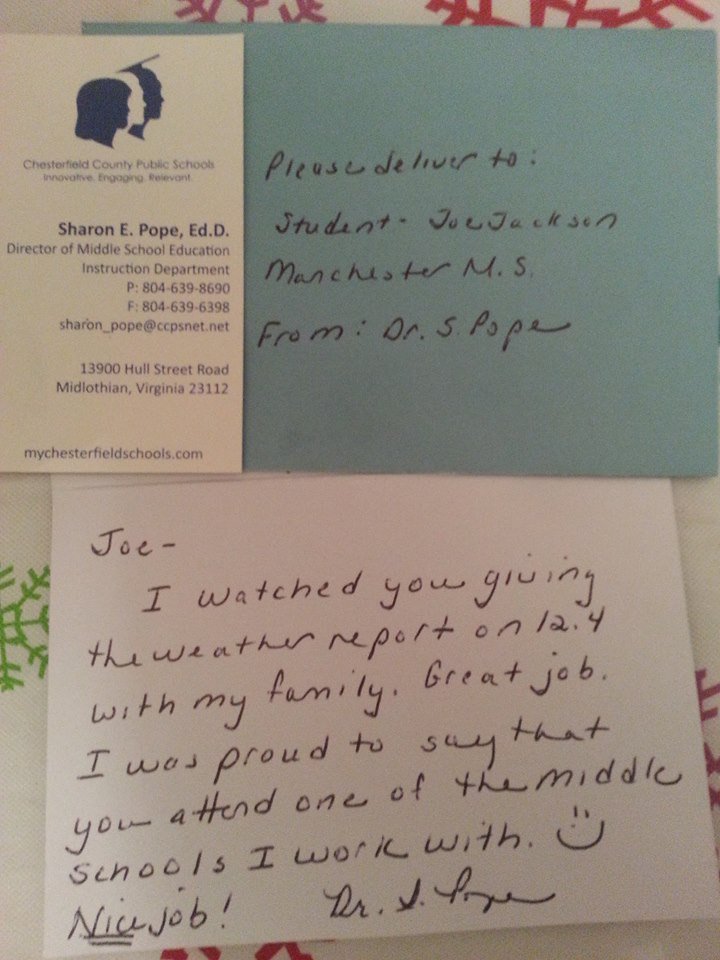 Chesterfield County Public Schools
Innovative. Engaging. Relevant.
Sharon E. Pope, Ed.D.
Director of Middle School Education
Instruction Department
P: 804-639-8690
F: 804-639-6398
sharon_pope@ccpsnet.net
13900 Hull Street Road
Midlothian, Virginia 23112
mychesterfieldschools.com
Please deliver to:
Student - Joe Jackson
Manchester M.S.
From: Dr. S. Pope
Joe-
I watched you giving
the weather report on 12.4
with my family. Great job.
I was proud to say that
you attend one of the middle
schools I work with.
Nice job! Dr. S. Pope